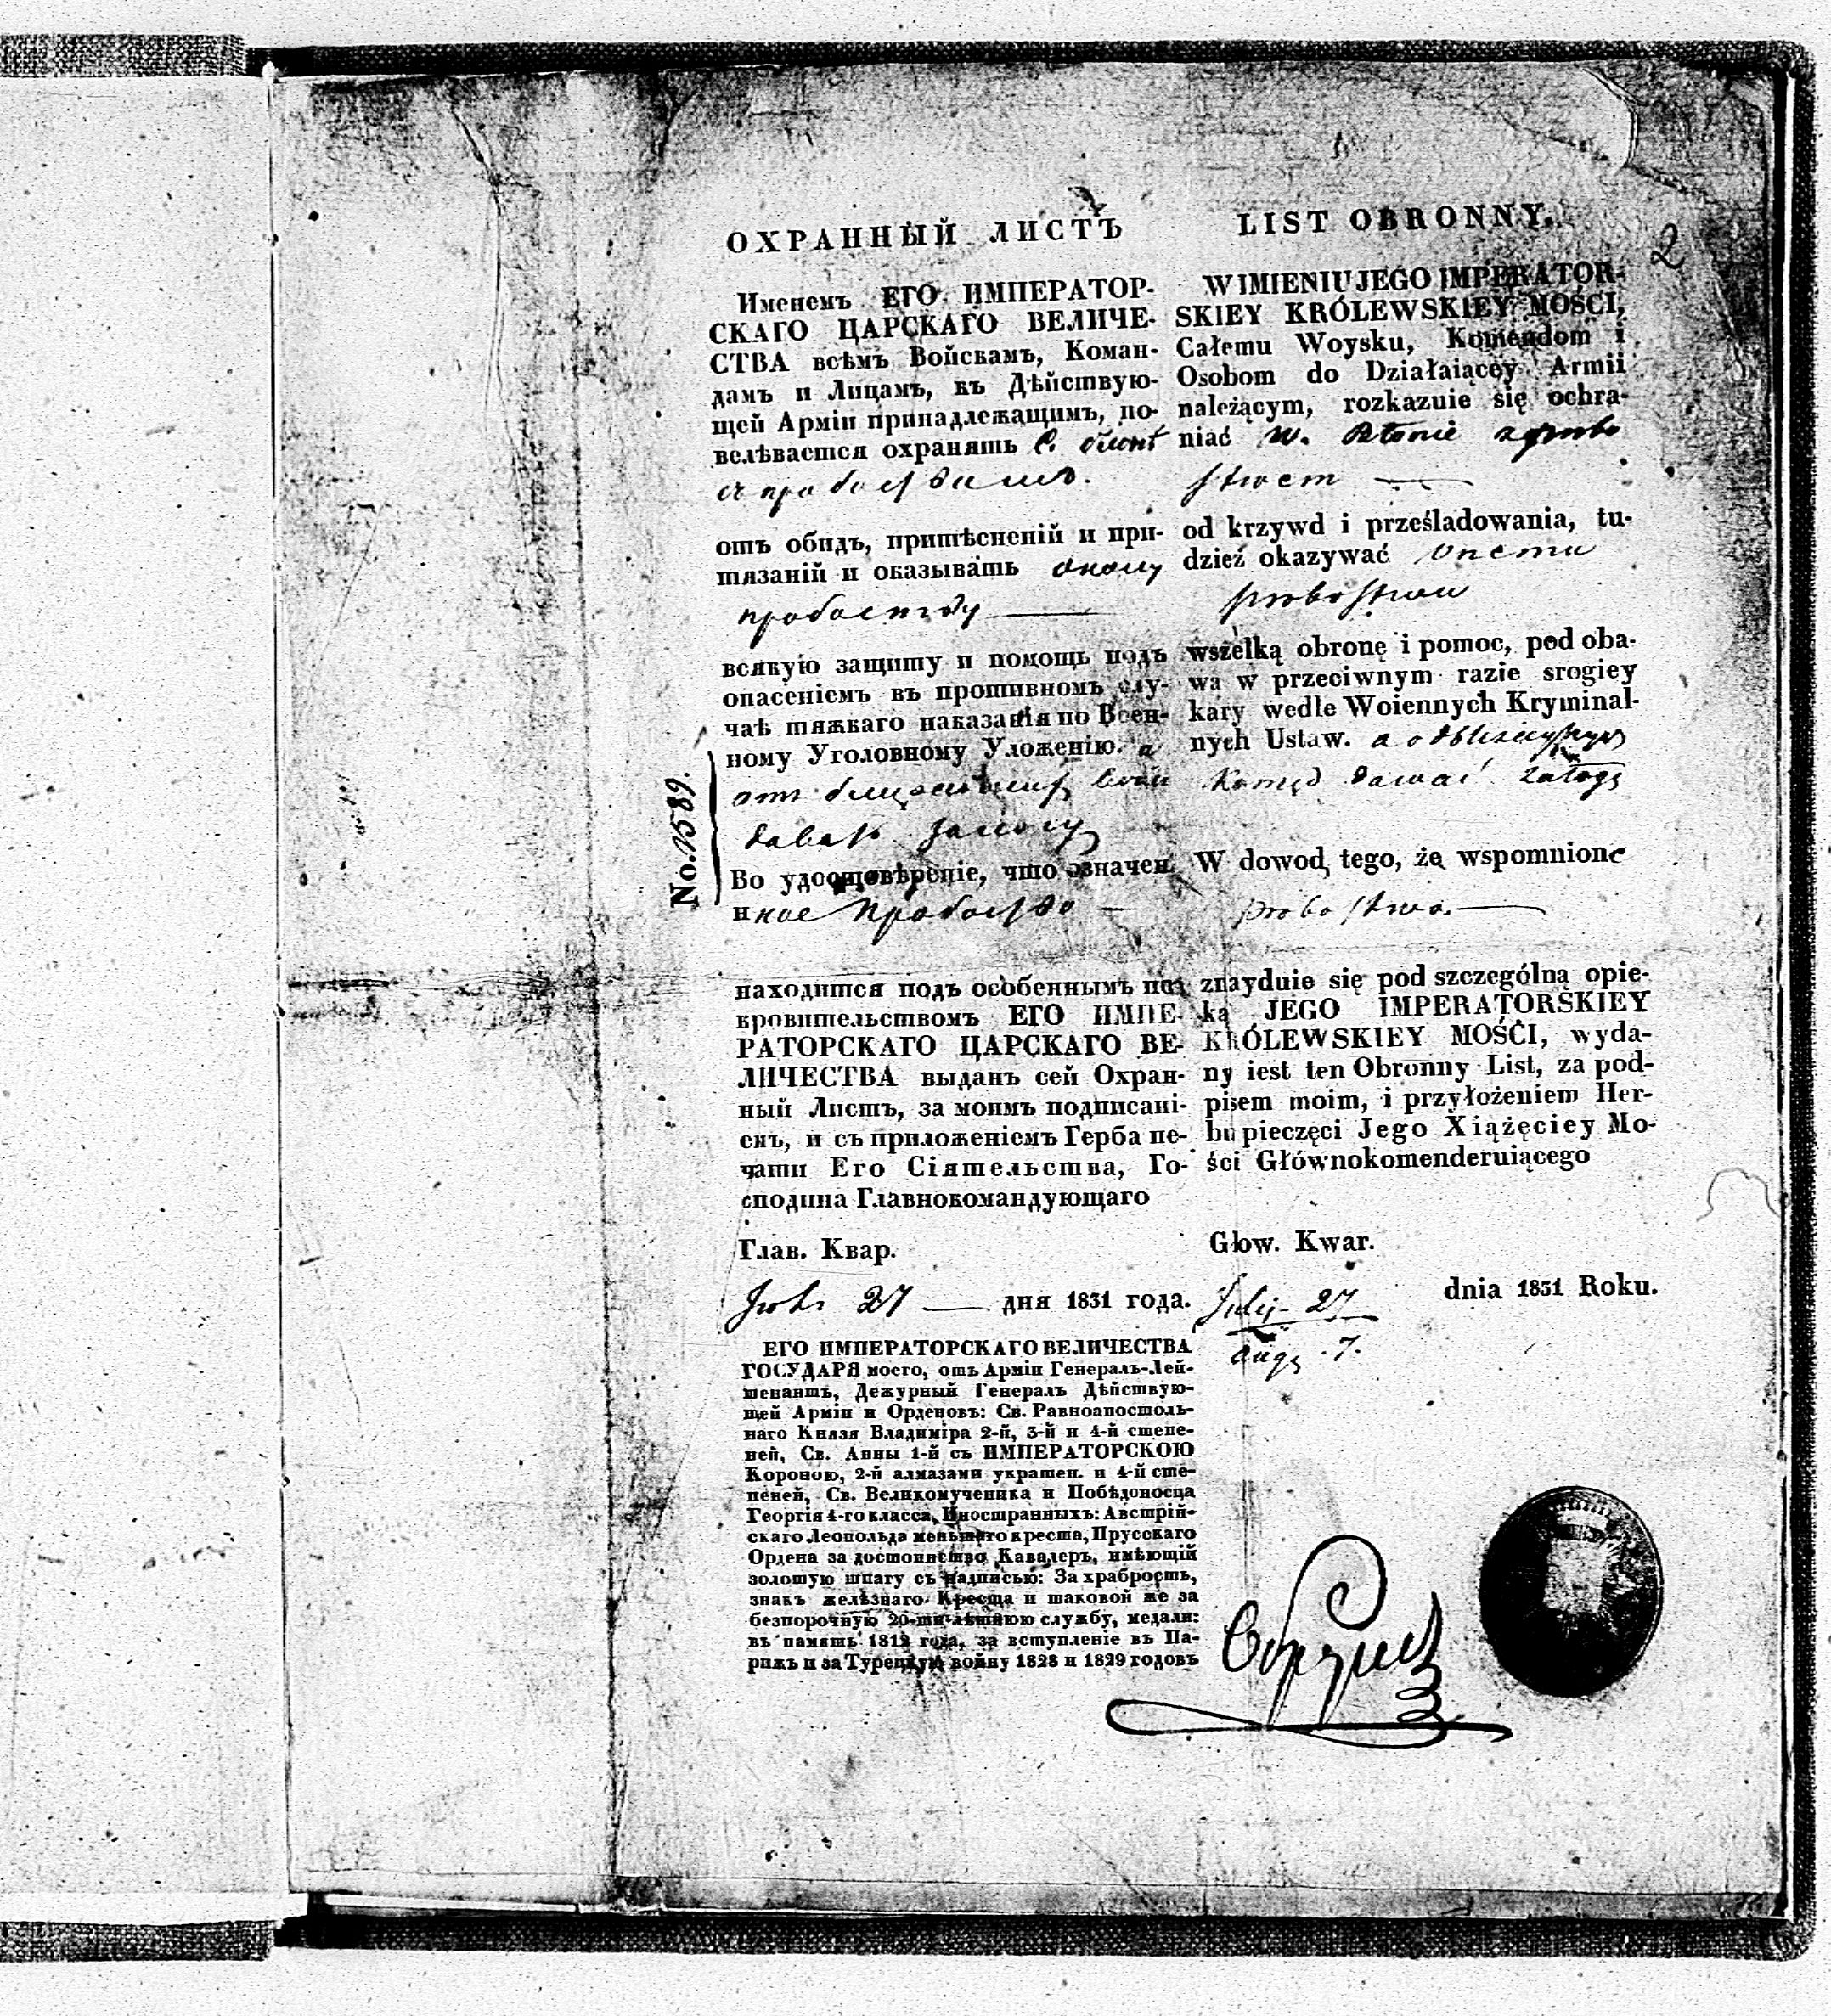 2
ОХРАННЫЙ ЛИСТЪ
Именемъ ЕГО ИМПЕРАТОР-
СКАГО ЦАРСКАГО ВЕЛИЧЕ-
СТВА всѣмъ Войскамъ, Коман-
дамъ и Лицамъ, къ Дѣйствую-
щей Арміи принадлежащимъ, по-
велѣвается охранять С.
отъ обидъ, притѣсненій и при-
тязаній и оказывать оному
пробоству
всякую защиту и помощь подъ
опасеніемъ въ противномъ слу-
чаѣ тяжкаго наказанія по Воен-
ному Уголовному Уложенію. а
давать залогу
No. 1589.
Во удостовѣреніе, что означен
ное пробоство
находится подъ особеннымъ по
кровительствомъ ЕГО ИМПЕ-
РАТОРСКАГО ЦАРСКАГО ВЕ-
ЛИЧЕСТВА выданъ сей Охран-
ный Листъ, за моимъ подписані-
емъ, и съ приложеніемъ Герба пе-
чати Его Сіятельства, Го-
сподина Главнокомандующаго
Глав. Квар.
27 дня 1831 года.
ЕГО ИМПЕРАТОРСКАГО ВЕЛИЧЕСТВА
ГОСУДАРЯ моего, отъ Арміи Генералъ-Лей-
тенантъ, Дежурный Генералъ Дѣйствую-
щей Арміи и Орденовъ: Св. Равноапостоль-
наго Князя Владиміра 2-й, 3-й и 4-й степе-
ней, Св. Анны 1-й съ ИМПЕРАТОРСКОЮ
Короною, 2-й алмазами украшен. и 4-й сте-
пеней, Св. Великомученика и Побѣдоносца
Георгія 4-го класса, Иностранныхъ: Австрій-
скаго Леопольда меньшаго креста, Прусскаго
Ордена за достоинство Кавалеръ, имѣющій
золотую шпагу съ надписью: За храбрость,
знакъ желѣзнаго Креста и таковой же за
безпорочную 20-ти-лѣтнюю службу, медали:
въ память 1812 года, за вступленіе въ Па-
рижъ и за Турецкую войну 1828 и 1829 годовъ
LIST OBRONNY.
W IMIENIU JEGO IMPERATOR-
SKIEY KRÓLEWSKIEY MOŚCI,
Całemu Woysku, Komendom i
Osobom do Działaiącey Armii
należącym, rozkazuie się ochra-
niać w. Błonie z probo
stwem
od krzywd i prześladowania, tu-
dzież okazywać onemu
probostwu
wszelką obronę i pomoc, pod oba-
wa w przeciwnym razie srogiey
kary wedle Woiennych Kryminal-
nych Ustaw. a od bliższych
Komęd dawać załogę
W dowod tego, że wspomnione
probostwo.
znayduie się pod szczególną opie-
ką JEGO IMPERATORSKIEY
KRÓLEWSKIEY MOŚCI, wyda-
ny iest ten Obronny List, za pod-
pisem moim, i przyłożeniem Her-
bu pieczęci Jego Xiążęciey Mo-
ści Głównokomenderuiącego
Głow. Kwar.
July 27 dnia 1831 Roku.
Aug 7.